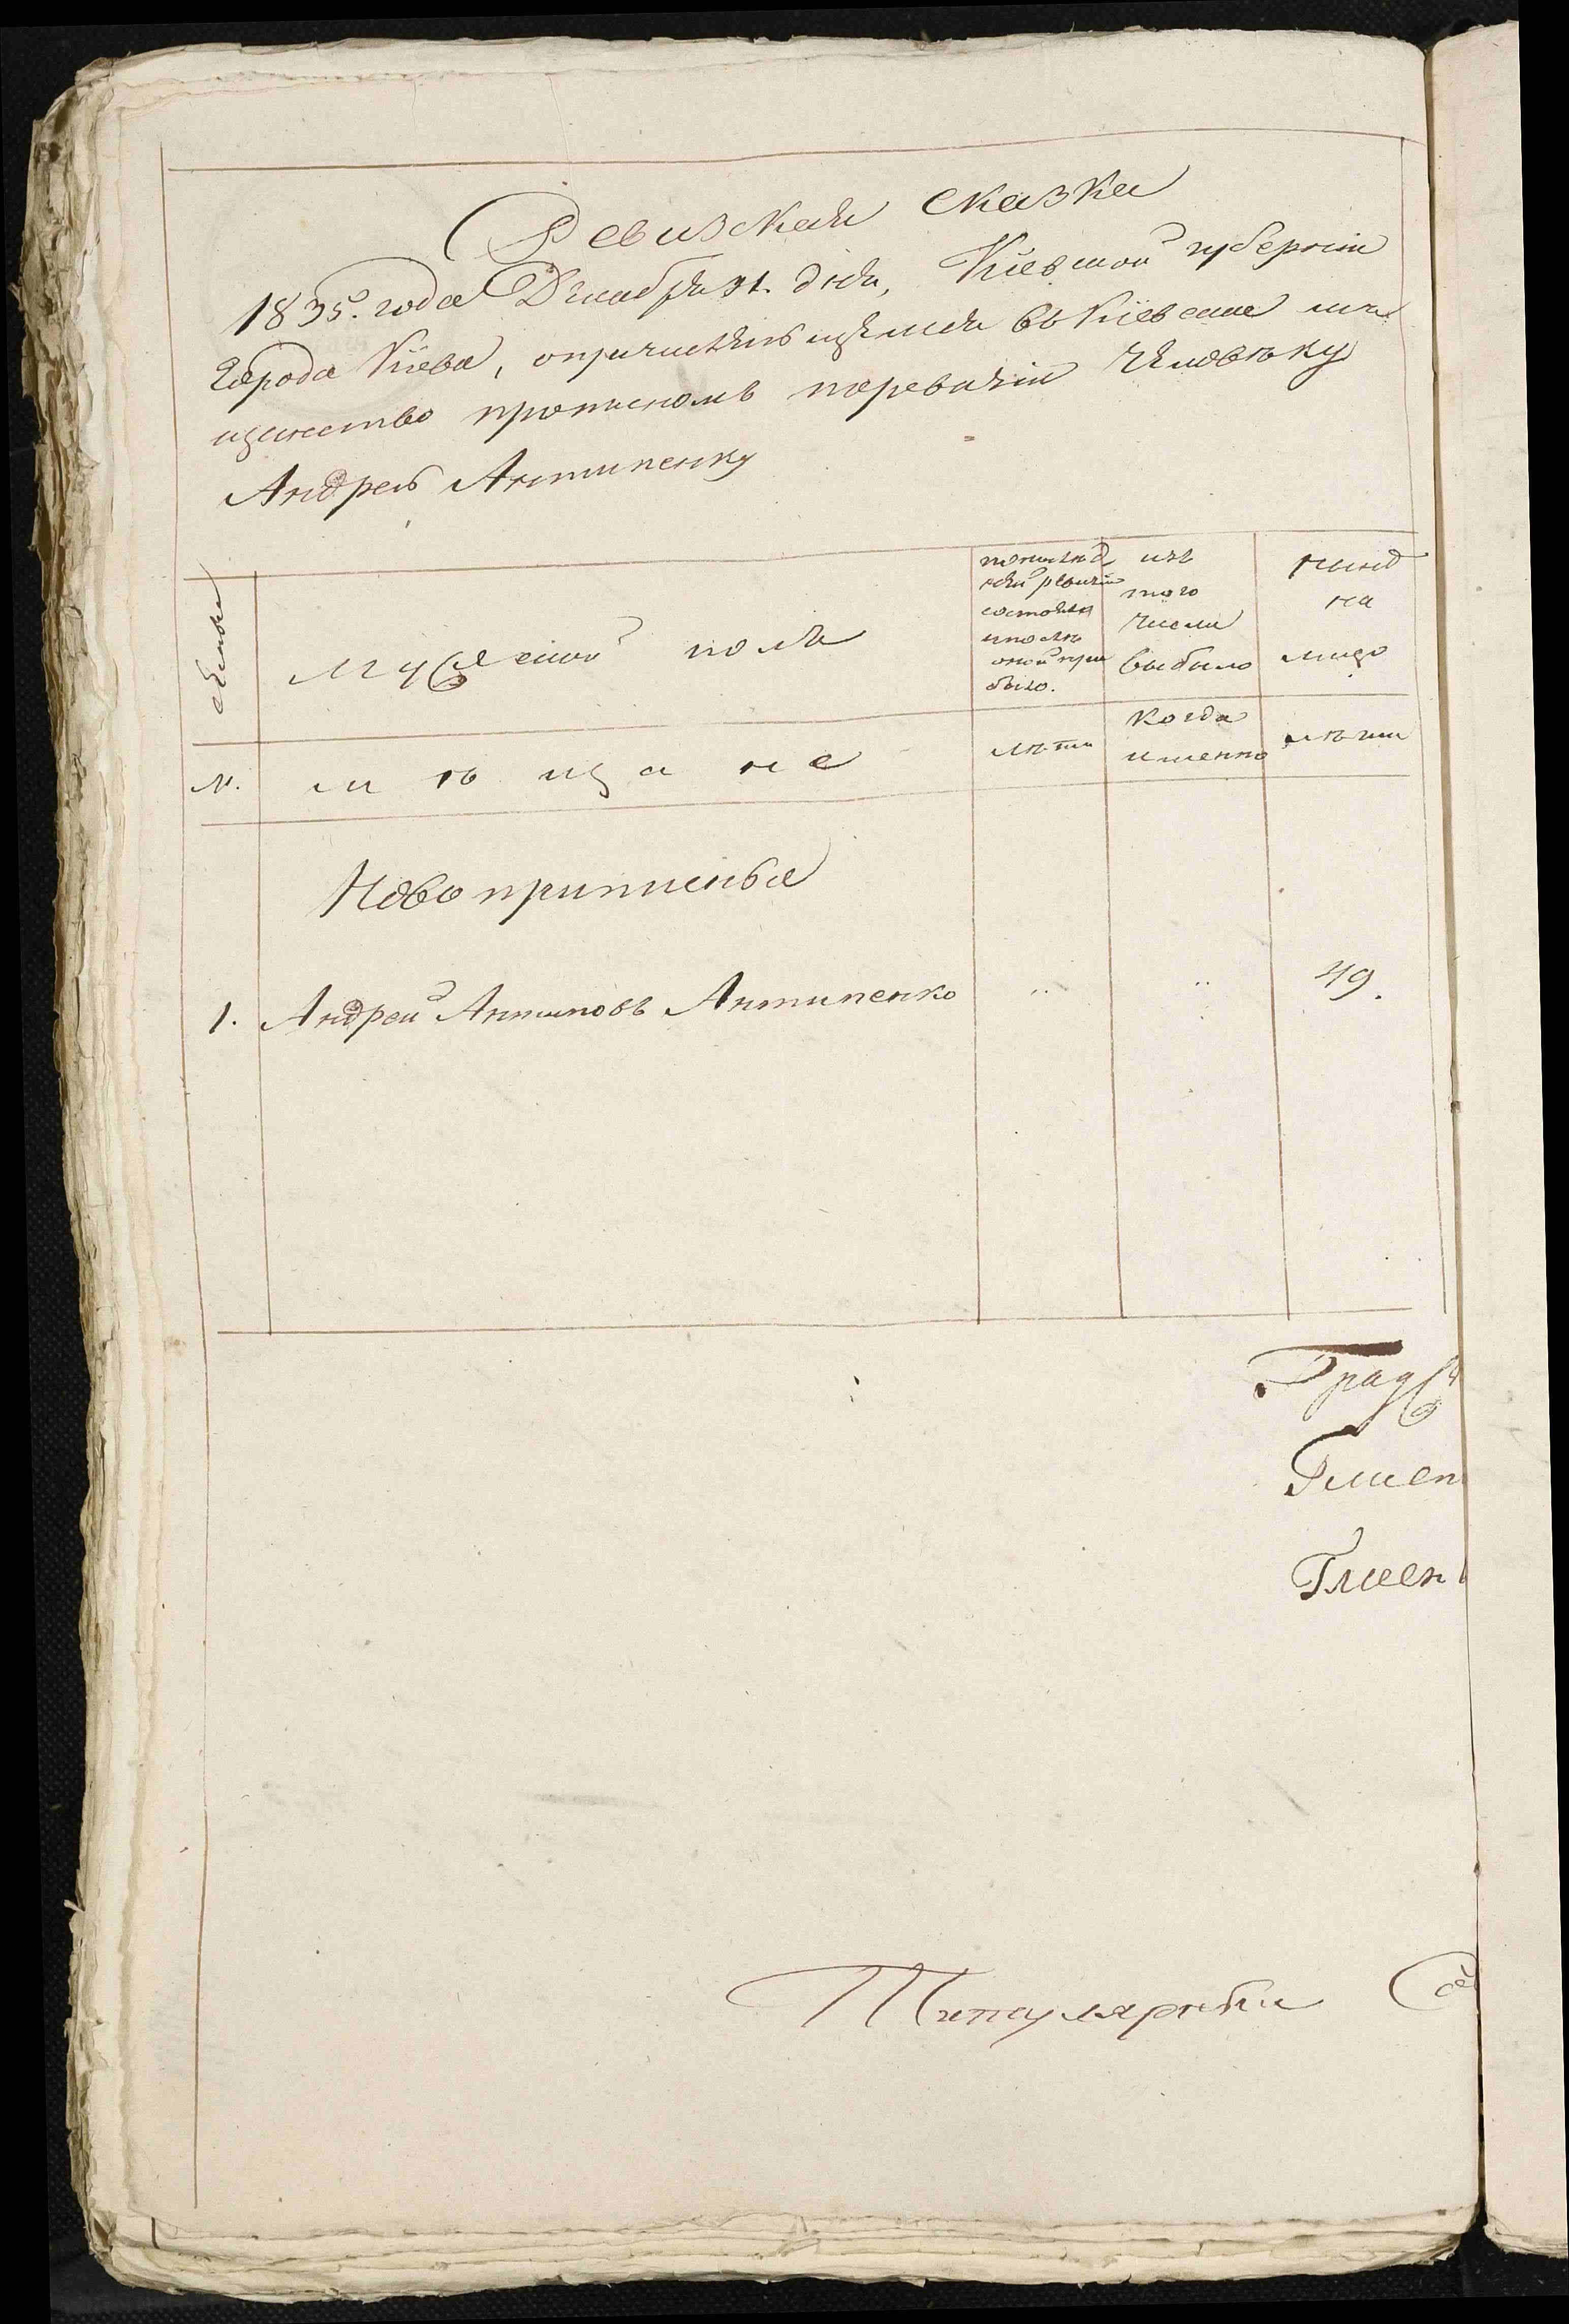 Ревизская сказка
1835. года Декабря 31. дня, Киевской губернии
Города Киева, о причислившемся въ Киевское мѣ
щанство прописномъ по ревизіи человѣку
Андрею Антипенку
семьи
мужеской полъ
по послѣд
ней ревизіи
состояло
и послѣ
оной при
было.
изъ
того
числа
выбыло
нынѣ
на
лицо
№.
мѣщане
лѣта
когда
именно
лѣта
Новоприписные
1. Андрей Антиповъ Антипенко „ „ 49.
Град
Гласн
Гласн
Титулярный Со